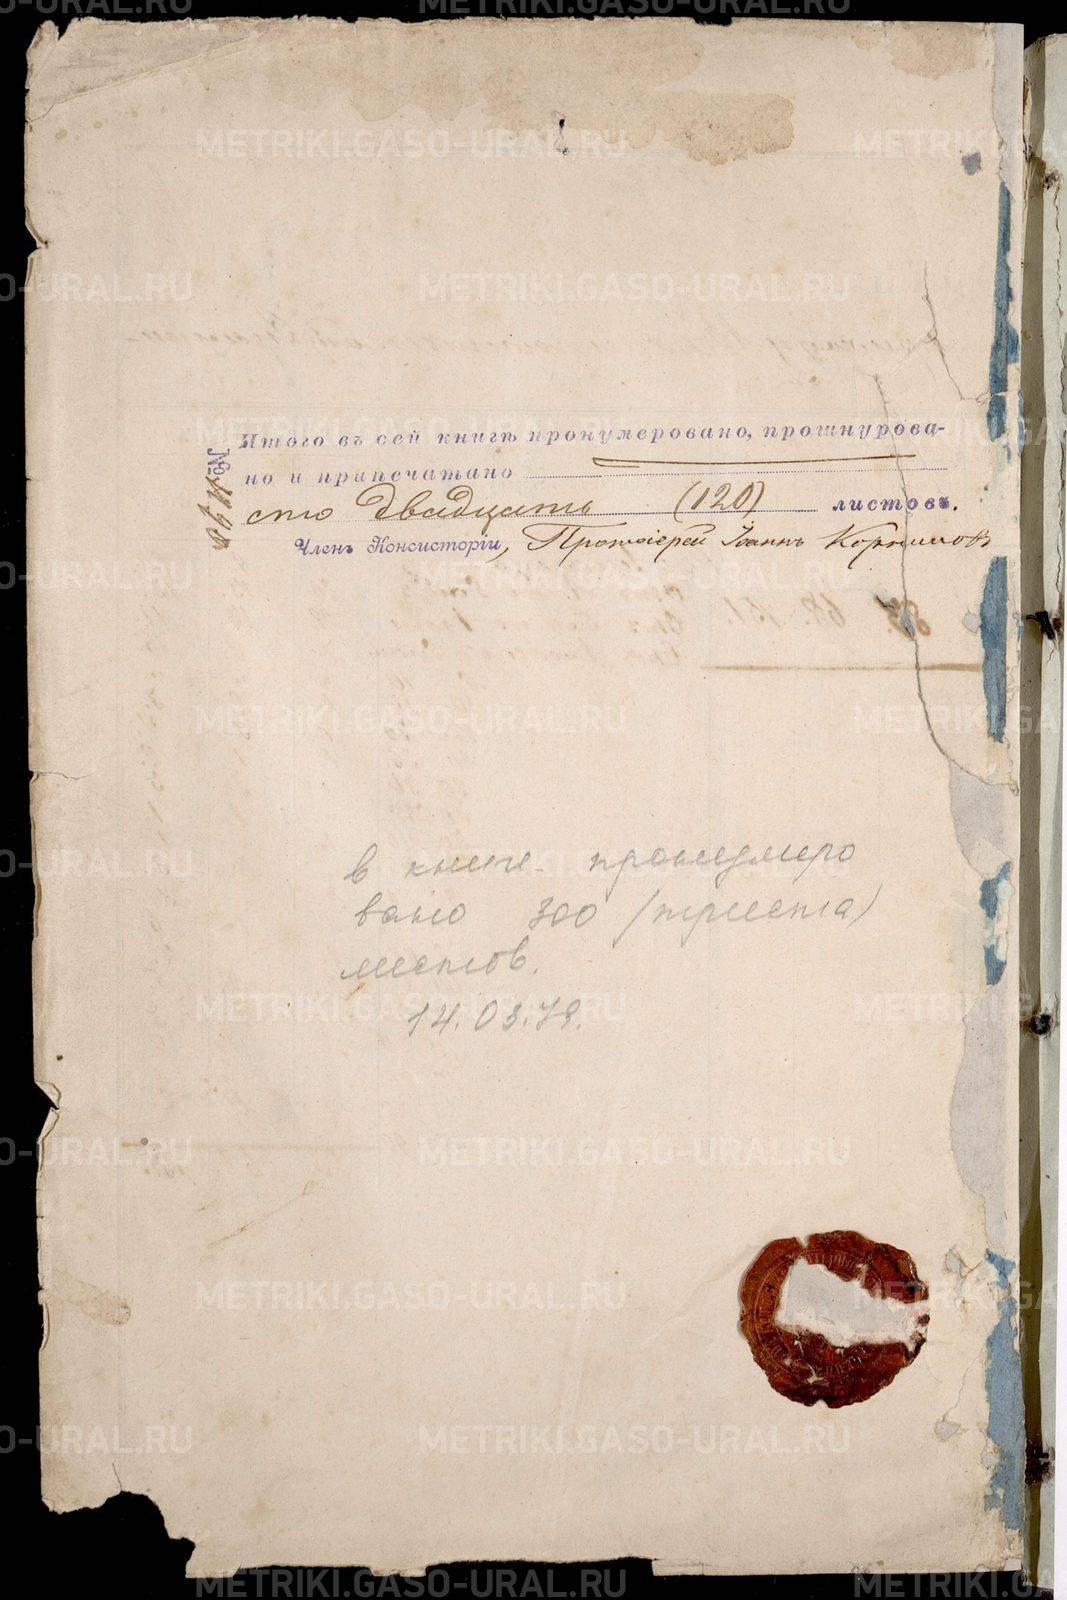 Итого въ сей книгѣ пронумеровано, прошнурова-
но и припечатано
сто двадцать (120) листовъ.
Членъ Консисторіи, Протоіерей Іоаннъ
№
в книге пронумеро
вано 300 (триста)
листов.
14.03.79.
METRIKI.GASO-URAL.RU